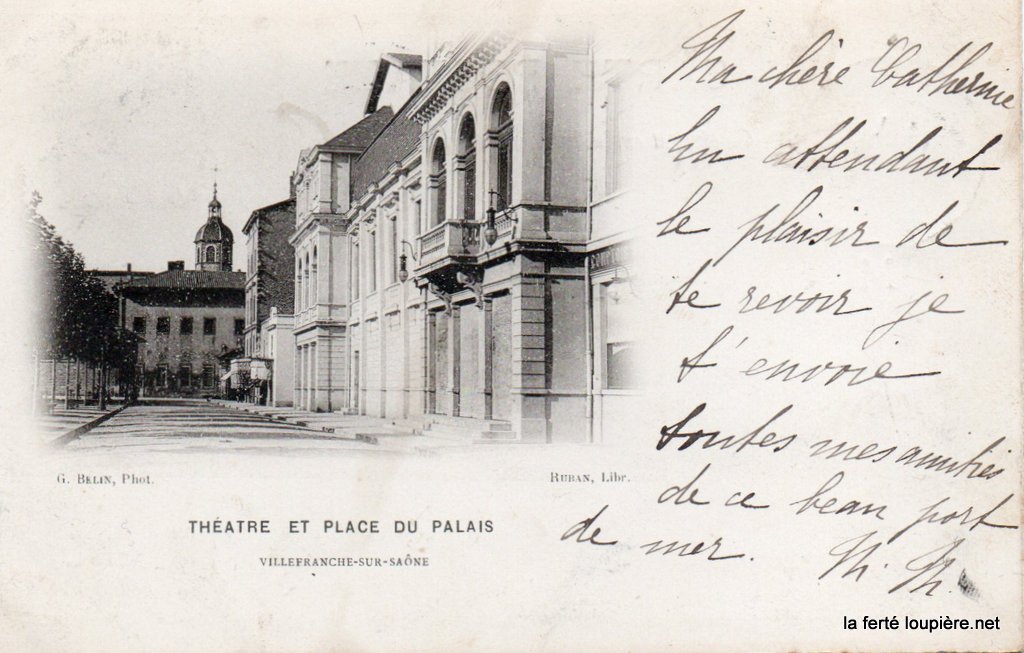 Ma chère Catherine
En attendant
le plaisir de
te revoir je
t'envoie
toutes mes amitiés
de ce beau port
de mer.
G. BELIN, Phot.
RUBAN, Libr.
THÉATRE ET PLACE DU PALAIS
VILLEFRANCHE-SUR-SAÔNE
la ferté loupière.net